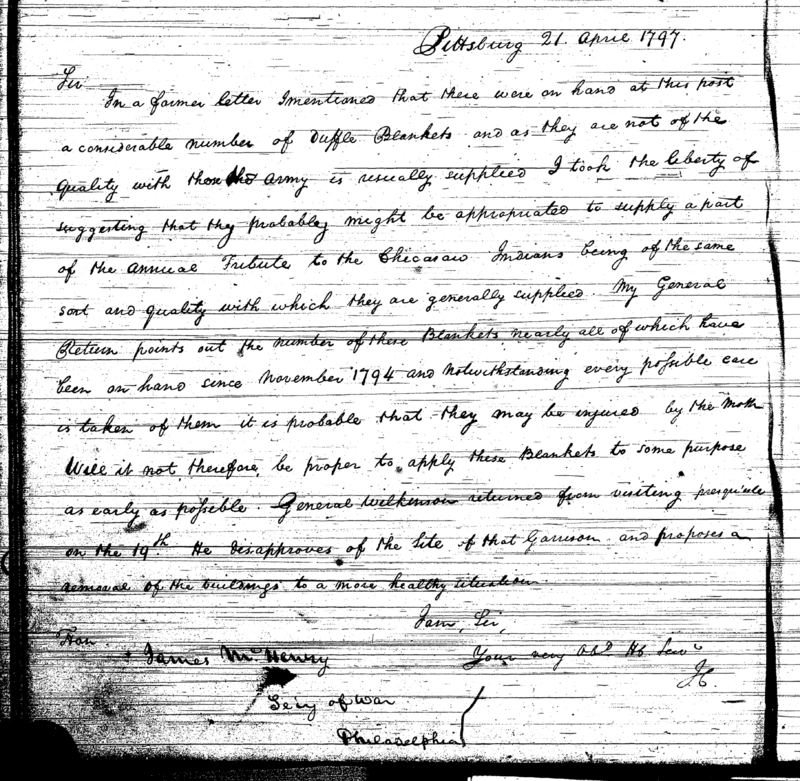 Pittsburg 21. April 1797.
Sir
In a former letter I mentioned that there were on hand at this post
a considerable number of Duffle Blankets and as they are not of the
quality with the Army is usually supplied I took the liberty of
suggesting that they probably might be appropriated to supply a part
of the annual Tribute to the Chicasaw Indians being of the same
sort and quality with which they are generally supplied. My General
Return points out the number of these Blankets nearly all of which have
been on hand since November 1794 and notwithstanding every possible care
is taken of them it is probable that they may be injured by the Moth
Will it not therefore, be proper to apply these Blankets to some purpose
as early as possible. General Wilkinson returned from visiting presquisle
on the 19th. He disapproves of the Site of that Garrison and proposes a
removal of the buildings to a more healthy situation.
I am, Sir,
Your very Obt. Hb. Serv.
Hon.
James McHenry
Sec'y of War
Philadelphia